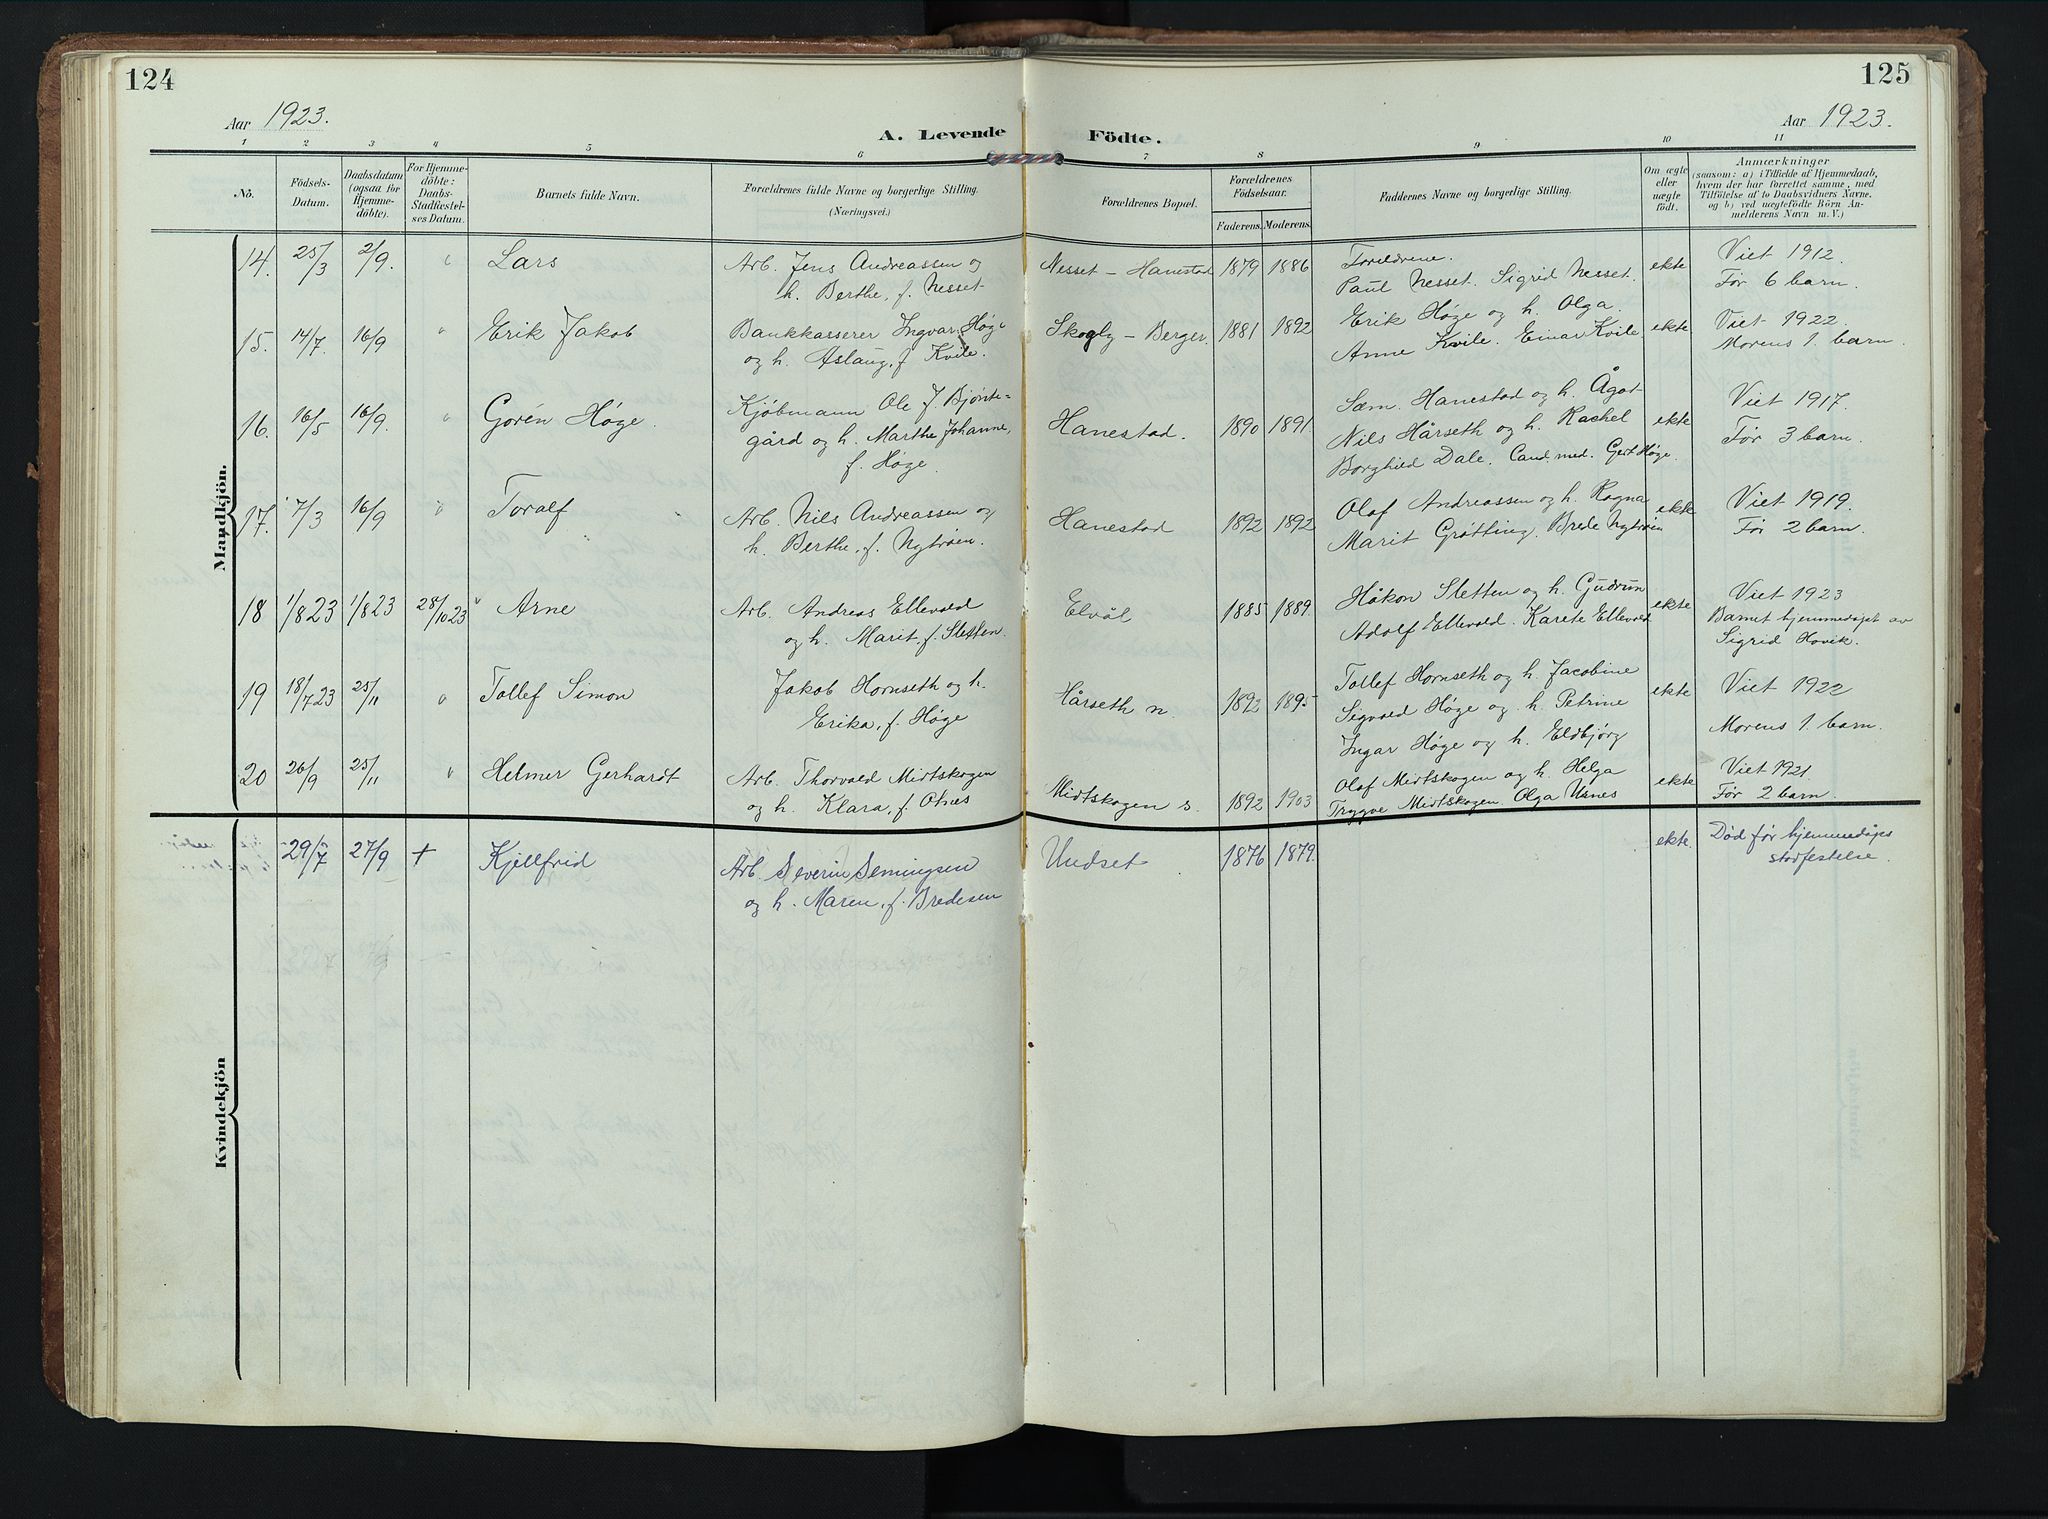 124
125
Aar 1923.
Aar 1923.
A. Levende Födte.
1 2 3 4 5 6 7 8 9 10 11
No.
Födsels-Datum.
Daabsdatum (ogsaa for Hjemme-döbte).
For Hjemme-döbte: Daabs-Stadfæstel-ses Datum.
Barnets fulde Navn.
Forældrenes fulde Navne og borgerlige Stilling.
(Næringsvei.)
Forældrenes Bopæl.
Forældrenes Födselsaar.
Faderens. Moderens.
Faddernes Navne og borgerlige Stilling.
Om ægte eller uægte födt.
Anmærkninger
(saasom: a) i Tilfælde af Hjemmedaab,
hvem der har forrettet samme, med
Tilföielse af to Daabsvidners Navne.
og b) ved uægtefödte Börn An-
melderens Navn m. V.)
Mandkjön.
14. 25/3 2/9. " Lars
Arb. Jens Andreassen og
h. Berthe, f. Nesset
Nesset - Hanestad 1879 1886
Foreldrene.
Paul Nesset. Sigrid Nesset.
ekte
Viet 1912.
Før 6 barn.
15. 14/7. 16/9 " Erik Jakob
Bankkasserer Ingvar Høge
og h. Aslaug, f. Kvile.
Skogly - Berger. 1881 1892
Erik Høge og h. Olga.
Anne Kvile. Einar Kvile.
ekte
Viet 1922.
Morens 1. barn.
16. 16/5 16/9. " Gorén Høge.
Kjøbmann Ole J. Bjønte-
gård og h. Marthe Johanne,
f. Høge.
Hanestad. 1890 1891
Sæm. Hanestad og h. Ågot
Nils Hårseth og h. Rachel
Borghild Dale. Cand. med. Gert Høge.
ekte
Viet 1917.
Før 3 barn.
17. 7/3 16/9 " Toralf
Arb. Nils Andreassen og
h. Berthe, f. Nytrøen.
Hanestad 1892 1892
Olaf Andreassen og h. Ragna
Marit Grøtting. Brede Nytrøen
ekte
Viet 1919.
Før 2 barn.
18 1/8 23 1/8 23 28/10 23 " Arne
Arb. Andreas Ellevold
og h. Marit, f. Sletten.
Elvål 1885 1889.
Håkon Sletten og h. Gudrun
Adolf Ellevold. Karete Ellevold
ekte
Viet 1923
Barnet hjemmedøpt av
Sigrid Hovik.
19 18/7 23 25/11 " Tollef Simon
Jakob Hornseth og h.
Erika, f. Høge
Hårseth n. 1893 1895
Tollef Hornseth og h. Jacobine
Sigvald Høge og h. Petrine
Ingar Høge og h. Eldbjørg
ekte
Viet 1922
Morens 1. barn.
20 26/9 25/11 " Helmer Gerhardt
Arb. Thorvald Midtskogen
og h. Klara, f. Otnes
Midtskogen s. 1892 1903
Olaf Midtskogen og h. Helga
Trygve Midtskogen. Olga Usnes
ekte
Viet 1921.
Før 2 barn.
Kvindekjön
29/7 27/9 + Kjellfrid
Arb. Severin Semingsen
og h. Maren, f. Bredesen
Undset 1876 1879.
ekte.
Død før hjemmedåps
stadfestelse.